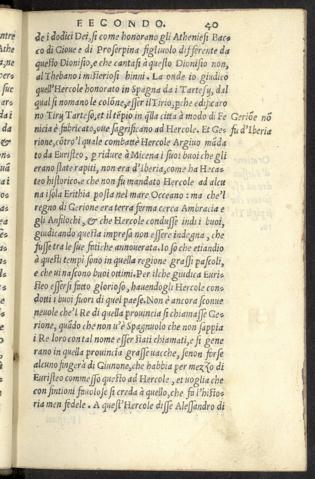 SECONDO. 40
de i dodici Dei, si come honorano gli Atheniesi Bac
co di Gioue e di Proserpina figliuolo differente da
questo Dionisio, e che cantasi à questo Dionisio non,
al Thebano i misteriosi hinni. La onde io giudico
quell'Hercole honorato in Spagna da i Tartesij, dal
qual si nomano le colōne, esser il Tirio, p̄che edificaro
no Tirij Tartesso, et il tēpio in q̄lla città à modo di Fe
nicia è fabricato, oue sagrificano ad Hercole. Et Ge=
rione, cōtro'l quale combattè Hercole Argiuo māda
to da Euristeo, p̄ ridure à Micena i suoi buoi che gli
erano state rapiti, non era d'Iberia, come ha Hecas
teo historico. e che non fu mandato Hercole ad alcu
na isola Erithia posta nel mare Oceano: ma che'l
regno di Gerione era terra ferma cerca Ambracia e
gli Anfilochi, & che Hercole condusse indi i buoi,
giudicando questa impresa non essere indegna, che
fusse tra le sue fatiche annouerata. Io so che etiandio
à questi tempi sono in quella regione grassi pascoli,
e che ui nascono buoi ottimi. Per ilche giudica Euris
teo essersi fatto glorioso, hauendogli Hercole cons
dotti i buoi fuori di quel paese. Non è ancora sconue
neuole che'l Re di quella prouincia si chiamasse Ge=
rione, quādo che non u'è Spagnuolo che non sappia
i Re loro con tal nome esser stati chiamati, e si gene
rano in quella prouincia grasse uacche, senon forse
alcuno fingerà di Giunone, che habbia per mezzo di
Euristeo commesso questo ad Hercole, et uoglia che
con fintioni fauolose si creda à quello, che fu l'histos
ria men fedele. A quest'Hercole disse Alessandro di
Geriōe nō
fu d'Iberia